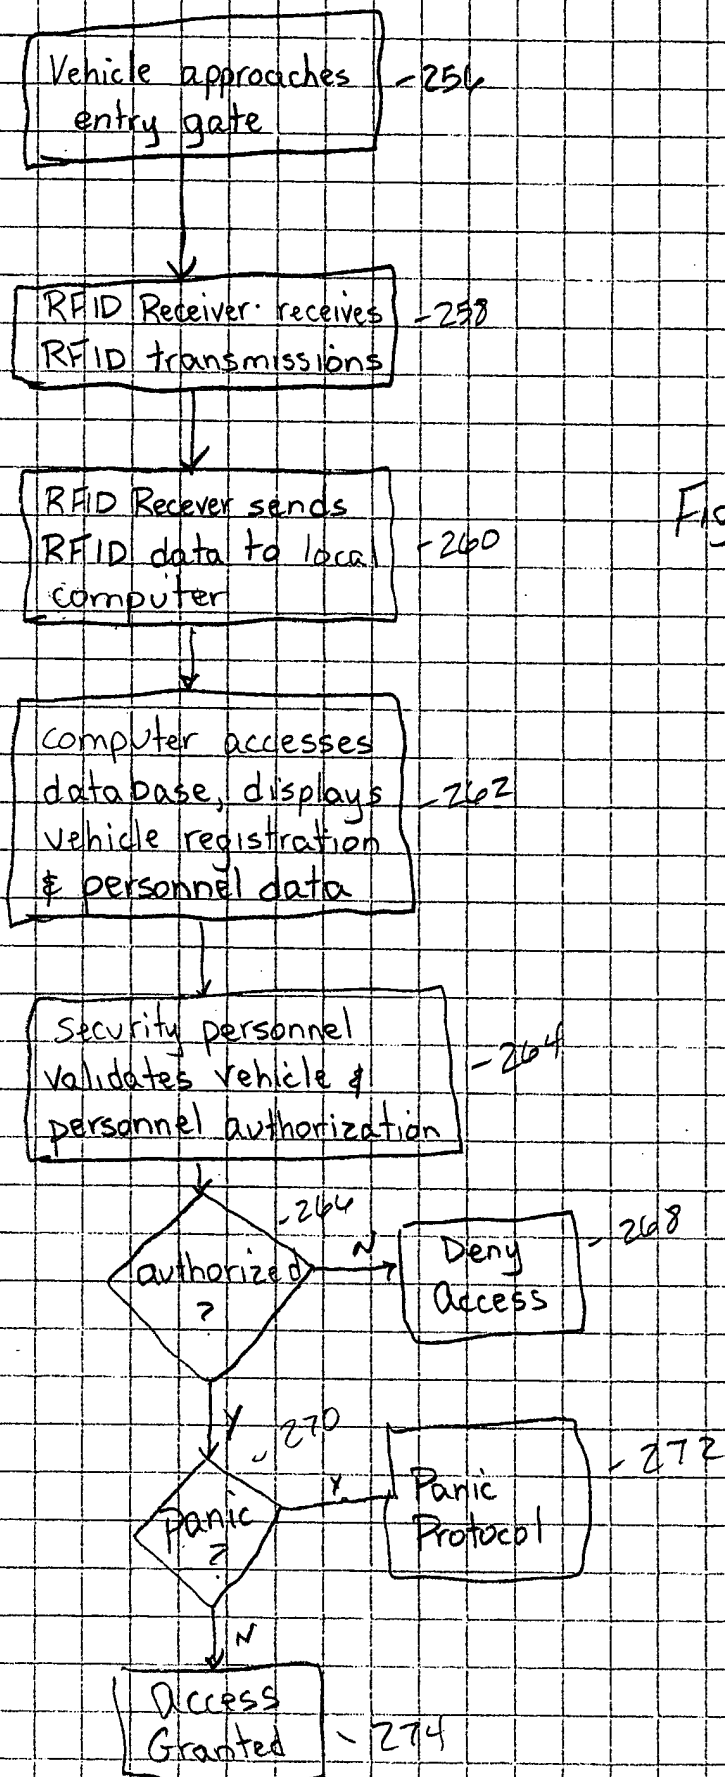 Vehicle approaches -256
entry gate
RFID Receiver receives -258
RFID transmissions
RFID Recever sends
RFID data to local -260
computer
Fig
computer accesses
database, displays -262
vehicle registration
& personnel data
Security personnel
validates vehicle & -264
personnel authorization
-266
authorized N
?
Deny -268
Access
Y -270
Panic Y
?
Panic -272
Protocol
N
Access
Granted -274